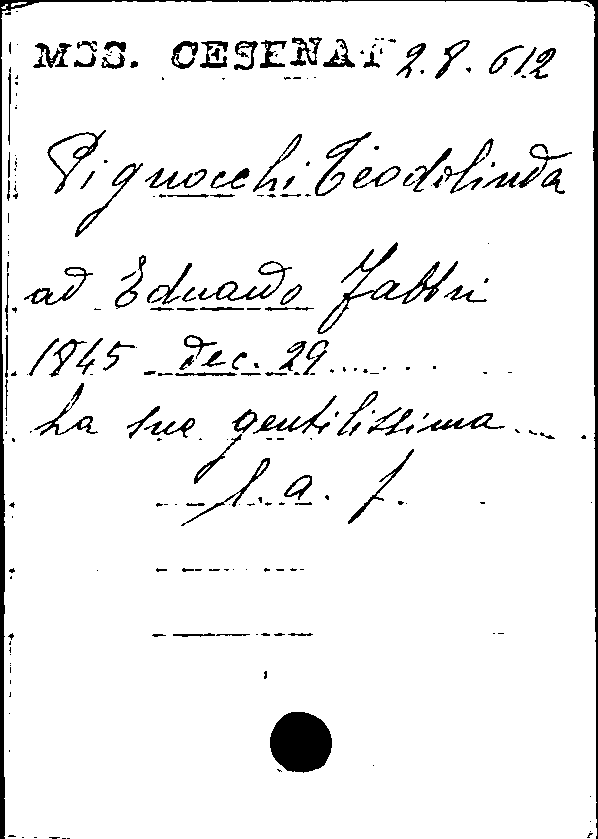 MSS. CESENAT 2.8.612
Pignocchi Teodolinda
ad Eduardo Fabbri
1845 dec. 29
La sua gentilissima
l. a. f.